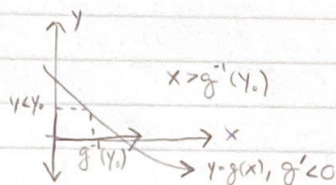 y
x > g⁻¹(y₀)
y<y₀
x
g⁻¹(y₀)
y=g(x), g'<0